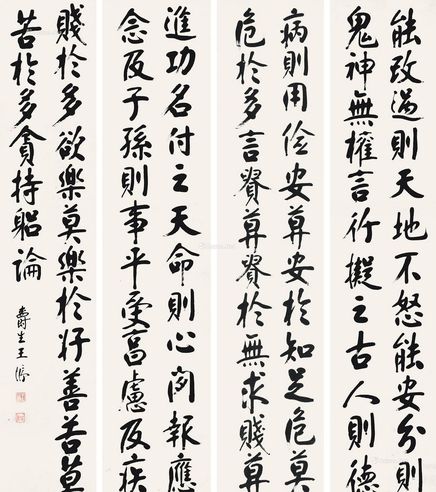 能改過則天地不怒能安分則
鬼神無權言行擬之古人則德
病則用儉安莫安於知足危莫
危於多言貴莫貴於無求賤莫
進功名付之天命則心閑報應
念及子孫則事平受享慮及疾
賤於多欲樂莫樂於好善苦莫
苦於多貪持躬論
壽生王